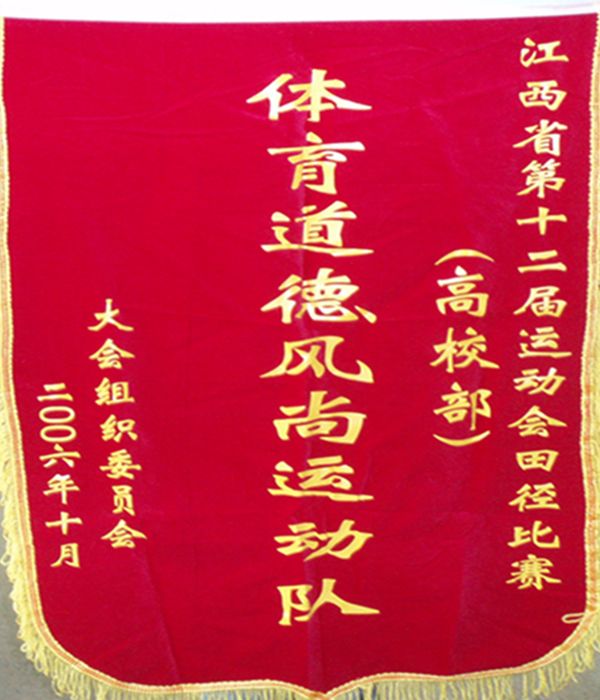 江西省第十二届运动会田径比赛
（高校部）
体育道德风尚运动队
大会组织委员会
二〇〇六年十月